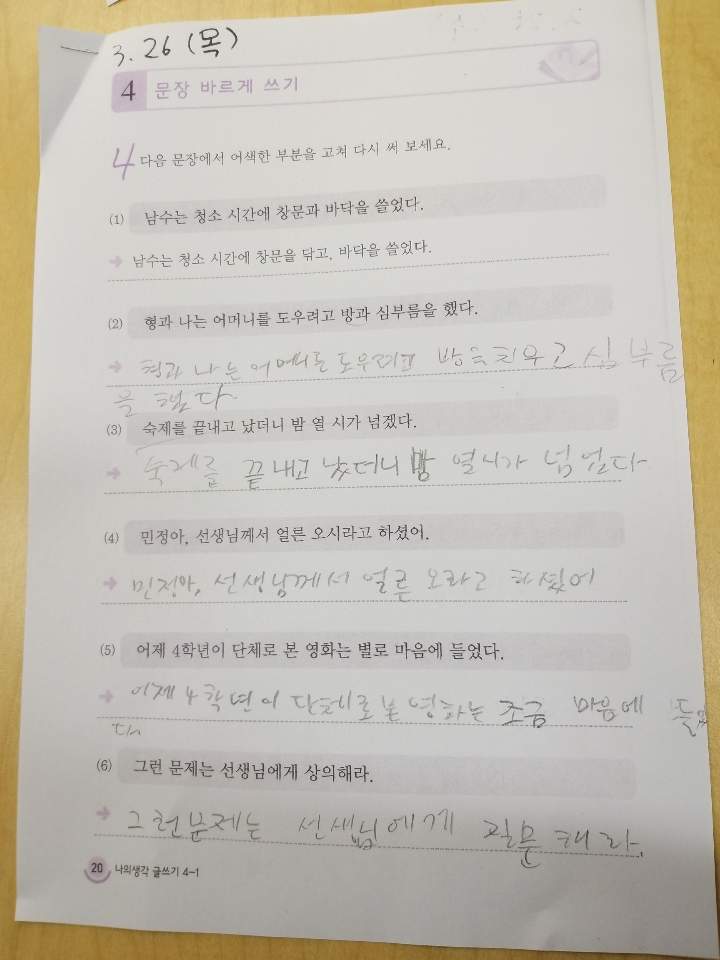 3. 26 (목)
4 문장 바르게 쓰기
4 다음 문장에서 어색한 부분을 고쳐 다시 써 보세요.
(1) 남수는 청소 시간에 창문과 바닥을 쓸었다.
➔ 남수는 청소 시간에 창문을 닦고, 바닥을 쓸었다.
(2) 형과 나는 어머니를 도우려고 방과 심부름을 했다.
➔ 형과 나는 어머니를 도우려고 방을 치우고 심부름
을 했다.
(3) 숙제를 끝내고 났더니 밤 열 시가 넘겠다.
➔ 숙제를 끝내고 났더니 밤 열시가 넘었다
(4) 민정아, 선생님께서 얼른 오시라고 하셨어.
➔ 민정아, 선생님께서 얼른 오라고 하셨어
(5) 어제 4학년이 단체로 본 영화는 별로 마음에 들었다.
➔ 어제 4학년이 단체로 본 영화는 조금 마음에 들었
다.
(6) 그런 문제는 선생님에게 상의해라.
➔ 그런문제는 선생님에게 질문해라.
20 나의생각 글쓰기 4-1